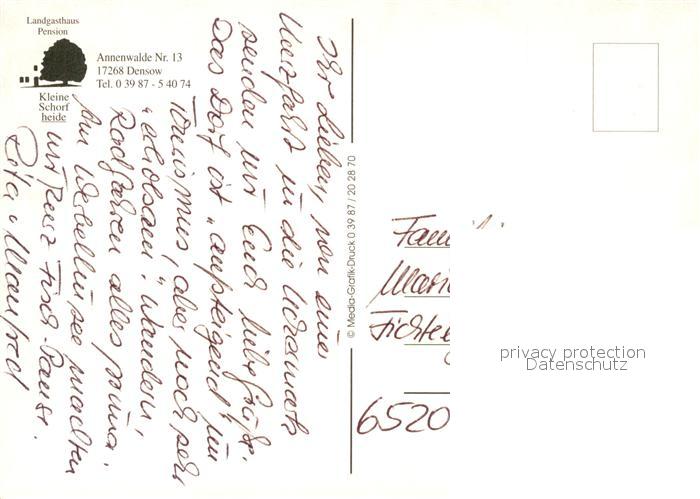 Landgasthaus
Pension
Annenwalde Nr. 13
17268 Densow
Tel. 0 39 87 - 5 40 74
Kleine
Schorf
heide
Ihr Lieben, von einer
Kurzfahrt in die Uckermark
senden wir Euch liebe Grüße.
Das Dorf ist "aufsteigend" im
Tourismus, aber noch sehr
"erholsam". Wandern,
Radfahren alles prima.
Am Werbellinsee machten
wir kurz Fisch-Pause.
Rita u. Manfred
© Media-Grafik-Druck 0 39 87 / 20 28 70
Fam
Mari
Fichte
6520
privacy protection
Datenschutz